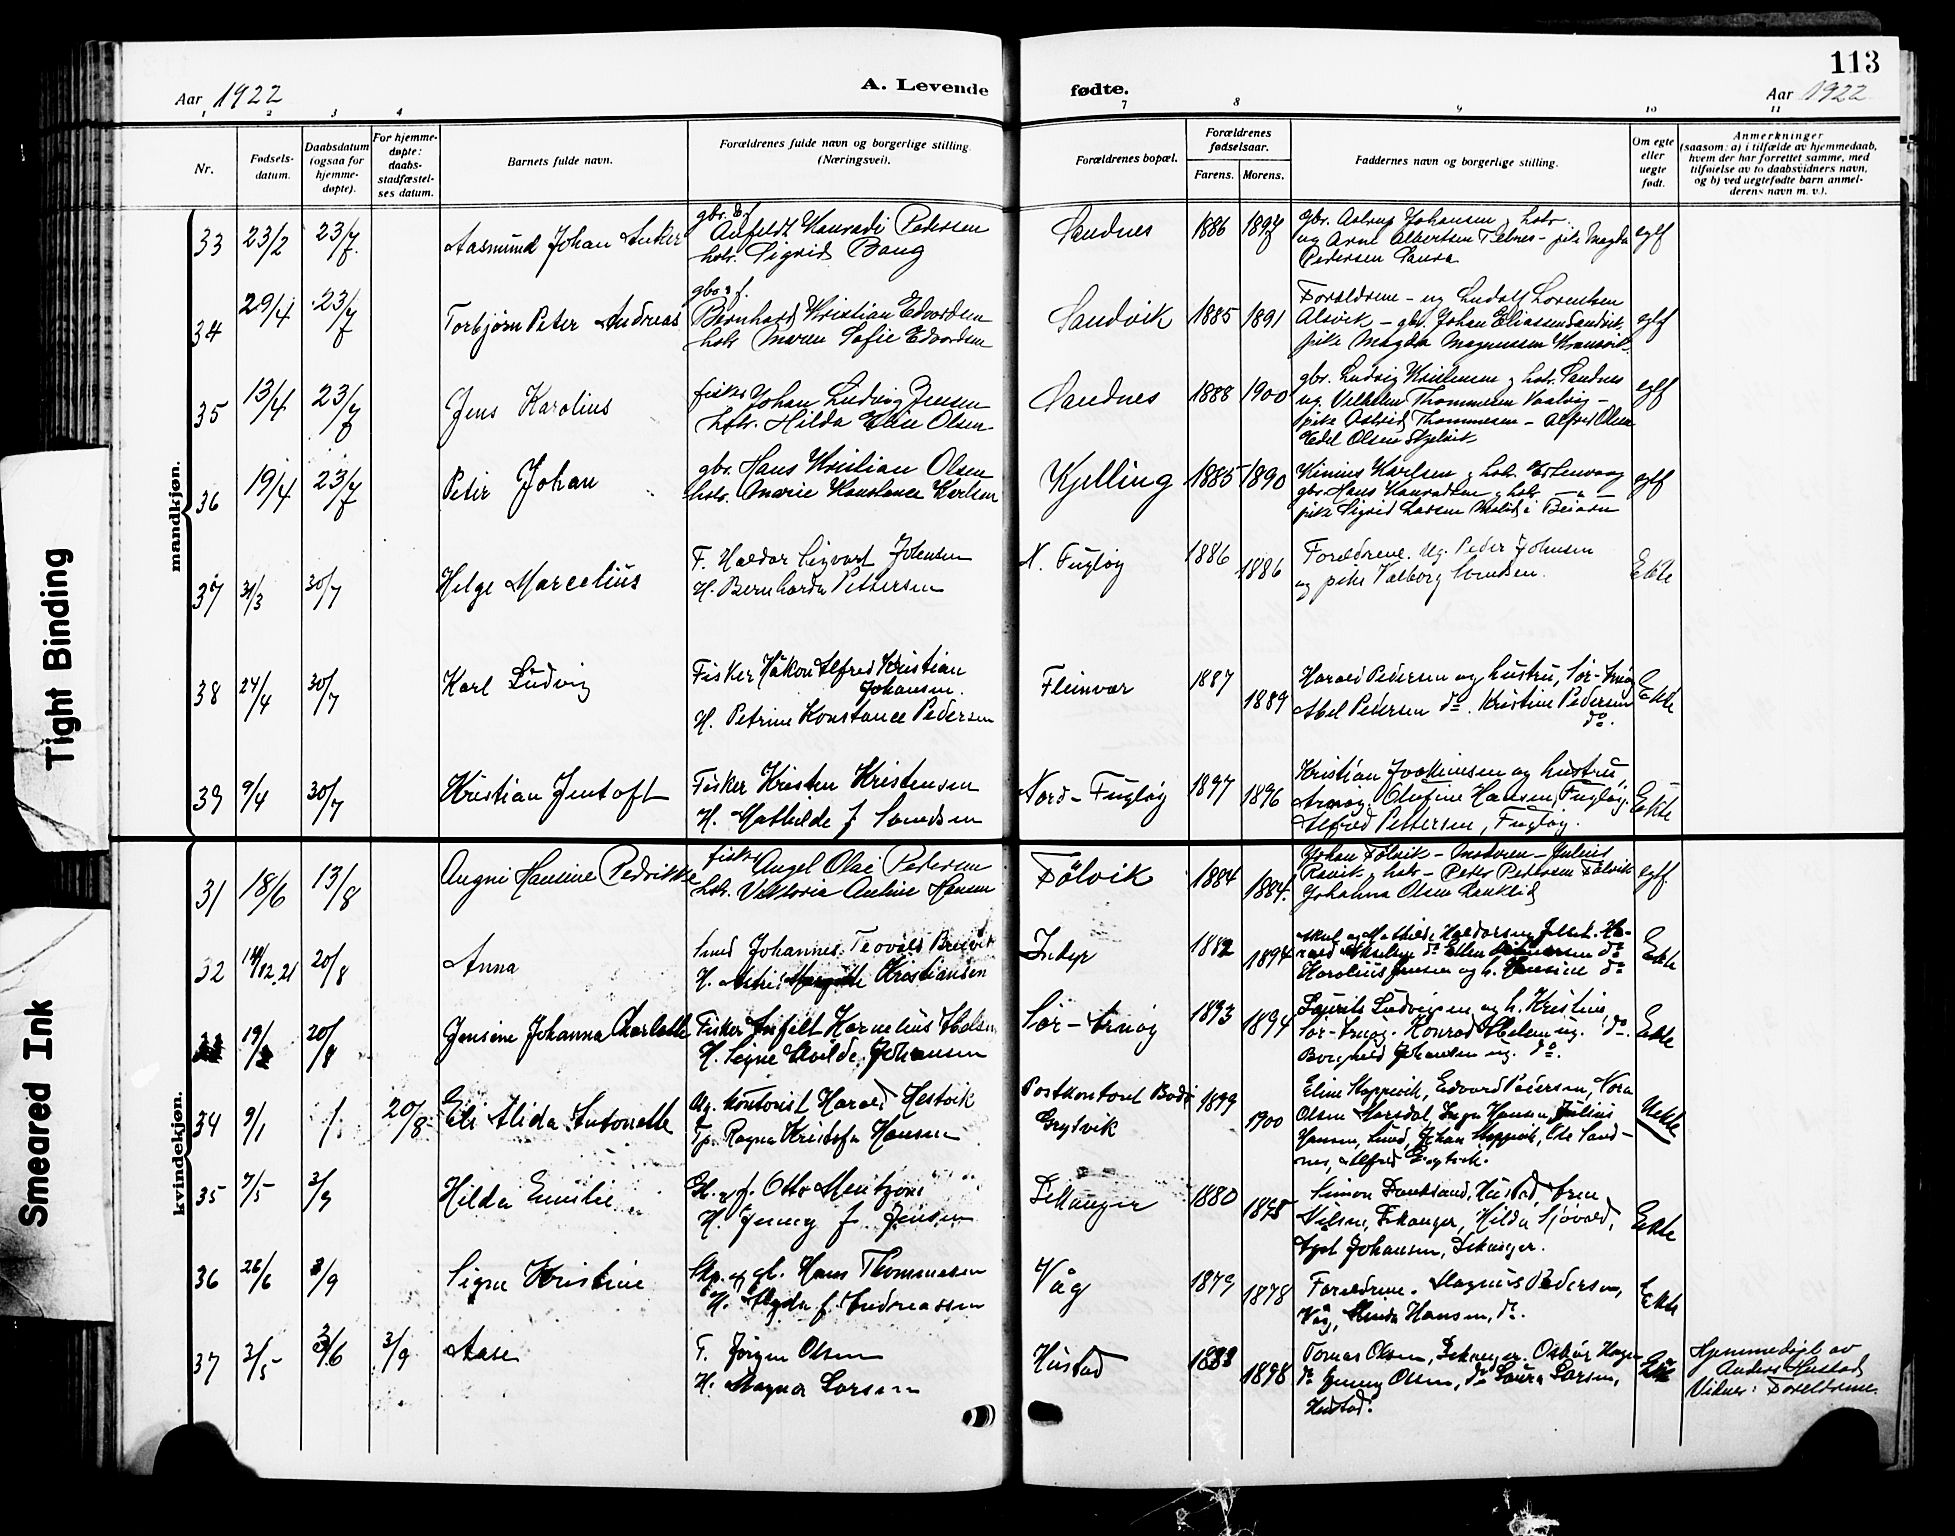 113
Aar 1922
A. Levende fødte.
Aar 1922
1 2 3 4 7 8 9 10 11
Nr.
Fødsels-
datum.
Daabsdatum
(ogsaa for
hjemme-
døpte).
For hjemme-
døpte:
daabs-
stadfæstel-
ses datum.
Barnets fulde navn.
Forældrenes fulde navn og borgerlige stilling.
(Næringsvei).
Forældrenes bopæl.
Forældrenes
fødselsaar.
Farens. Morens.
Faddernes navn og borgerlige stilling.
Om egte
eller
uegte
født.
Anmerkninger
(saasom: a) i tilfælde av hjemmedaab,
hvem der har forrettet samme, med
tilføielse av to daabsvidners navn,
og b) ved uegtefødte barn anmel-
derens navn m. v.).
mandkjøn.
33 23/2 23/7 Aasmund Johan Anker
gbr. & f.
Anfeldt Konradi Pedersen
hstr. Sigrid Bang
Sandnes 1886 1897
gbr. Astrup Johansen & hstr.
ug Arne Albertsen Telnes - pike Magda
Pedersen Saura
egtf
34 29/4 23/7 Torbjørn Peter Andreas
gbr & f.
Bernhard Kristian Edvardsen
hstr Maren Sofie Edvardsen
Sandvik 1885 1891
Forældrene - ug Ludolf Lorentsen
Alsvik - gbr. Johan Eliassen Sandvik
pike Magda Magnussen
egtf
35 13/4 23/7 Jens Karolius
fisker Johan Ludvig Jensen
hstr. Hilda Elise Olsen
Sandnes 1888 1900
gbr. Ludvig Kristensen & hstr. Sandnes
ug. Vilhelm Thommesen -
pike Astrid Thommesen - Alfred Olsen
Edel Olsen
egtf
36 19/4 23/7 Peter Johan
gbr. Hans Kristian Olsen
hstr. Marie Konstance Karlsen
Kjelling 1885 1890
Karlsen & hstr.
gbr. Hans Konradsen & hstr. - " -
pike Sigrid Larsen i Beiarn
egtf
37 31/3 30/7 Helge Marcelius
F. Haldor Sigvart Johnsen
H. Bernharda Pettersen
N. Fugløy 1886 1886
Forældrene. Ug. Peder Johnsen
og pike Valborg
Ekte
38 24/4 30/7 Karl Ludvig
Fisker Håkon Alfred Kristian
Johansen.
H. Petrine Konstance Pedersen
Fleinvær 1887 1889
Harald Pedersen og hustru, Sør-Arnøy
Abel Pedersen do. Kristine Pedersen
do.
Ekte
39 9/4 30/7 Kristian Jentoft
Fisker Kristen Kristensen
H. Mathilde f
Nord-Fugløy 1897 1896
Kristian Joakimsen og hustru,
Arnøy. Olufine Hansen, Fugløy.
Alfred Pettersen, Fugløy.
Ekte
kvindekjøn.
31 18/6 13/8 Hansine Pedrikke
fisker Angel Olai Pedersen
hstr. Viktoria Hansen
Fölvik 1884 1884.
Johan Fölvik - - Julius
Ravik & hstr - Peter Pedersen Fölvik
Johanna Olsen
egtf.
32 20/8 Anna
Smed Johannes
H. Kristiansen
Inder 1882 1894
Karolius Jensen og h. Hansine do
Ekte
19/ 20/8 Jensine Johanna Charlotte
Fisker Anfelt Kornelius Abelsen
H. Signe Johansen
Sør-Arnøy 1893 1894
Laurits Ludvigsen og h. Kristine,
Sør-Arnøy. Konrad Abelsen ug. do.
Borghild Johansen ug. do.
Ekte
34 9/1 /. 20/8 Eli Alida Antonette
Ug. Kontorist Harald Hestvik
Tp. Ragna Kristofa Hansen
Postkontoret Bodø
Grytvik
1899 1900
Eline Edvard Pedersen, Nora
Olsen Marsdal, Inga Hansen, Julius
Hansen, Lund, Johan Ole Sand-
nes, Alfred Grytvik.
Uekte
35 7/5 3/9 Hilda Emilie
G. & f. Otto
H. Jenny f. Jensen
Dekanger 1880
Simon Hustad,
Nilsen, Dekanger, Hilda Sjøvold,
Johansen, Dekanger.
Ekte
36 26/6 3/9 Signe Kristine
Skp. og gb. Hans Thommesen
H. f. Andreassen
Våg 1879 1878
Foreldrene. Magnus Pedersen,
Våg, Hansen, do.
Ekte
37 3/5 3/6 3/9 Aase
F. Jørgen Olsen
H. Magna Larsen
Hustad 1898
Tomas Olsen, Dekanger.
do Jenny Olsen, do Laura Larsen,
Hustad.
Hjemmedøpt av
Anders Hustad
Vidner: Foreldrene
Tight Binding
Smeared Ink